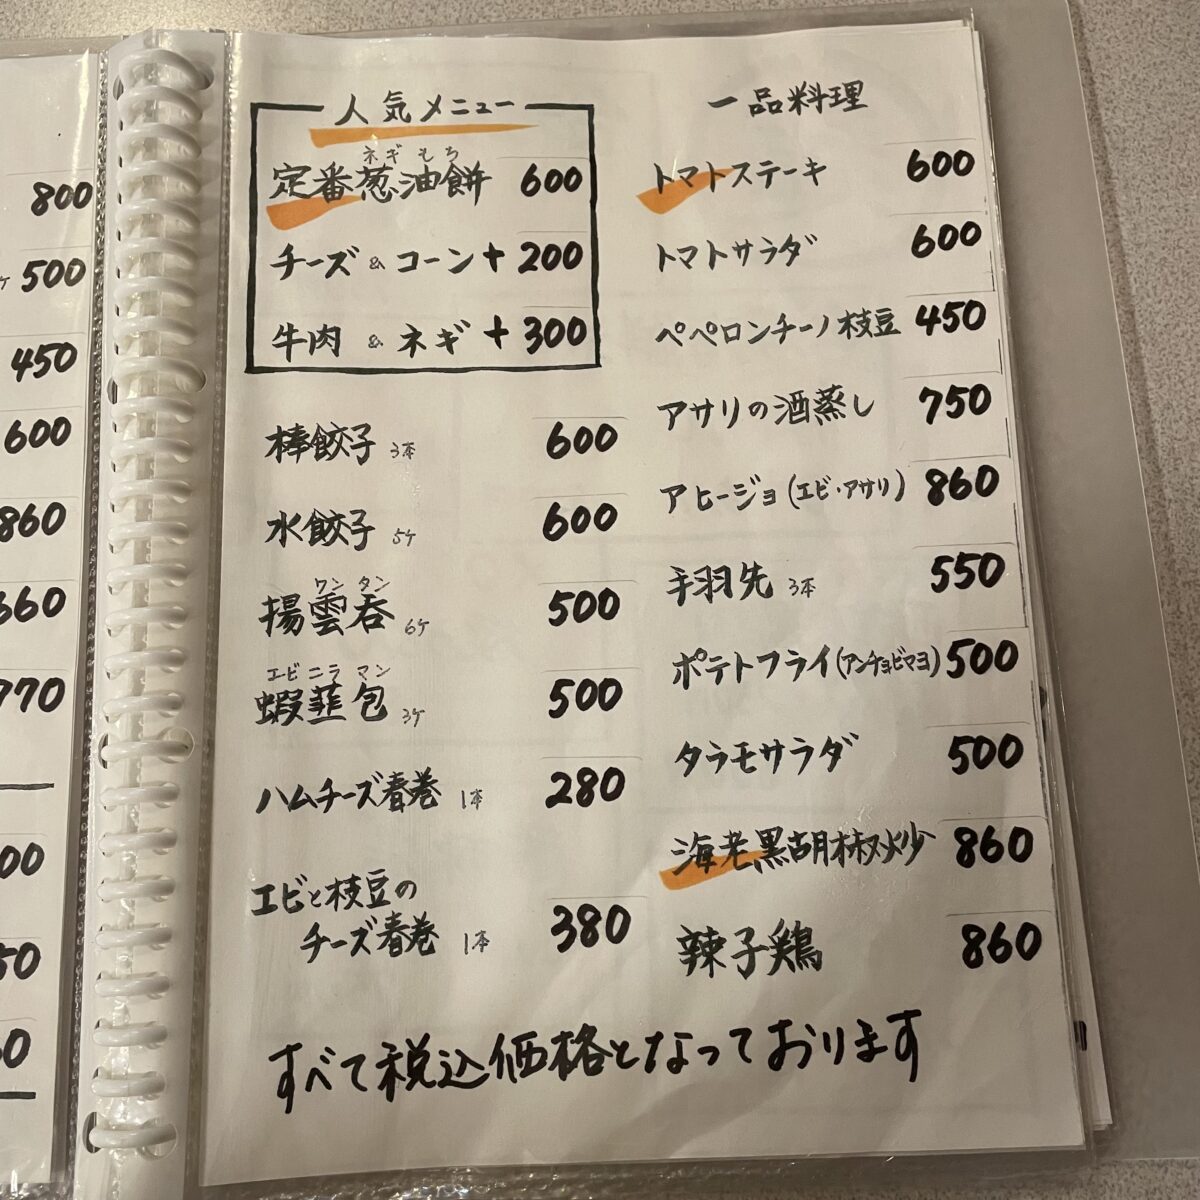 800
ケ 500
450
600
860
660
770
00
50
0
人気メニュー
ネギもち
定番葱油餅 600
チーズ & コーン + 200
牛肉 & ネギ + 300
棒餃子 3本 600
水餃子 5ケ 600
ワンタン
揚雲呑 6ケ 500
エビニラマン
蝦韮包 3ケ 500
ハムチーズ春巻 1本 280
エビと枝豆の
チーズ春巻 1本 380
一品料理
トマトステーキ 600
トマトサラダ 600
ペペロンチーノ枝豆 450
アサリの酒蒸し 750
アヒージョ(エビ・アサリ) 860
手羽先 3本 550
ポテトフライ(アンチョビマヨ) 500
タラモサラダ 500
海老黒胡椒炒 860
辣子鶏 860
すべて税込価格となっております